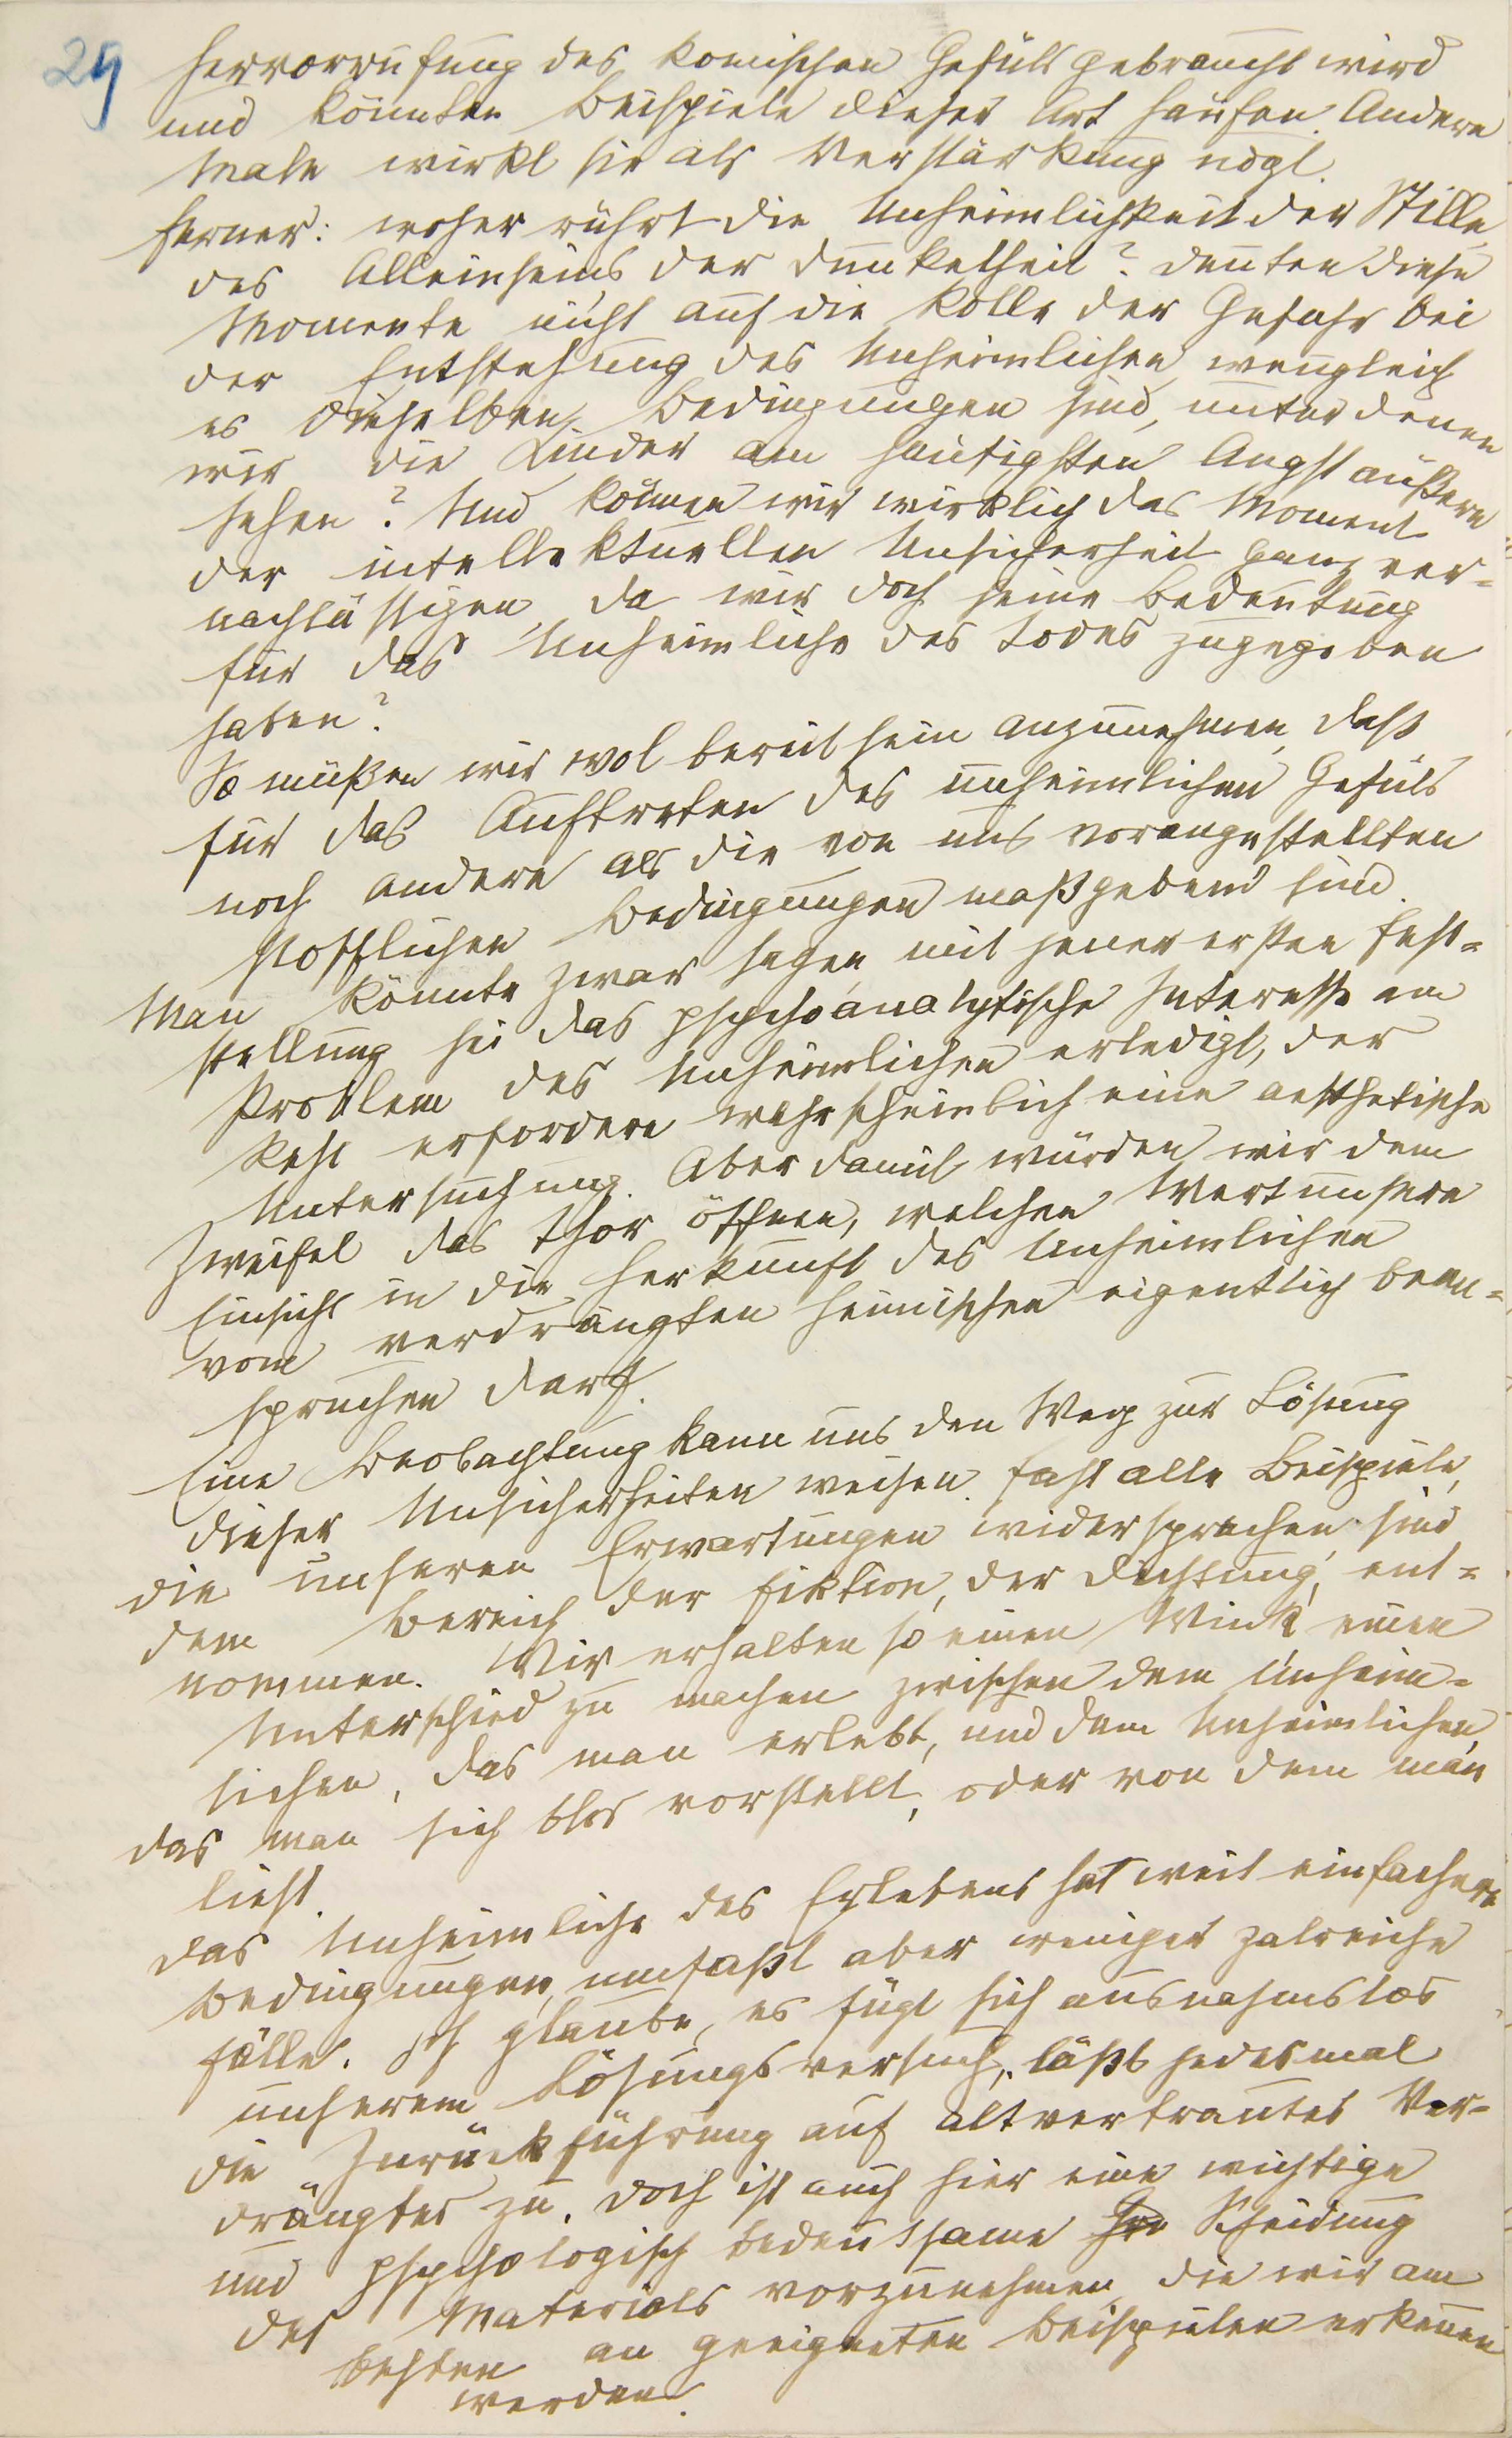 29
Hervorrufung des komischen Gefüls gebraucht wird
und könnten Beispiele dieser Art häufen. Andere
Male wirkt sie als Verstärkung udgl.
Ferner: woher rührt die Unheimlichkeit der Stille,
des Alleinseins der Dunkelheit? Deuten diese
Momente nicht auf die Rolle der Gefahr bei
der Entstehung des Unheimlichen, wenngleich
es dieselben Bedingungen sind, unter denen
wir die Kinder am häufigsten Angst äußern
sehen? Und können wir wirklich das Moment
der intellektuellen Unsicherheit ganz ver=
nachläßigen, da wir doch seine Bedeutung
für das Unheimliche des Todes zugegeben
haben?
So müßen wir wol bereit sein anzunehmen, daß
für das Auftreten des unheimlichen Gefüls
noch andere als die von uns vorangestellten
stofflichen Bedingungen maßgebend sind.
Man könnte zwar sagen, mit jener ersten Fest=
stellung sei das psychoanalytische Interesse am
Problem des Unheimlichen erledigt, der
Rest erfordere wahrscheinlich eine aesthetische
Untersuchung. Aber damit würden wir dem
Zweifel das Thor öffnen, welchen Wert unsere
Einsicht in die Herkunft des Unheimlichen
vom verdrängten Heimischen eigentlich bean=
spruchen darf.
Eine Beobachtung kann uns den Weg zur Lösung
dieser Unsicherheiten weisen. Fast alle Beispiele,
die unseren Erwartungen widersprechen, sind
dem Bereich der Fiktion, der Dichtung, ent=
nommen. Wir erhalten so einen Wink, einen
Unterschied zu machen zwischen dem Unheim=
lichen, das man erlebt, und dem Unheimlichen,
das man sich blos vorstellt, oder von dem man
liest.
Das Unheimliche des Erlebens hat weit einfachere
Bedingungen, umfaßt aber weniger zalreiche
Fälle. Ich glaube, es fügt sich ausnahmslos
unserem Lösungsversuch, läßt jedesmal
die Zurückführung auf altvertrautes Ver=
drängtes zu. Doch ist auch hier eine wichtige
und psychologisch bedeutsame Scheidung
des Materials vorzunehmen, die wir am
besten an geeigneten Beispielen erkennen
werden.